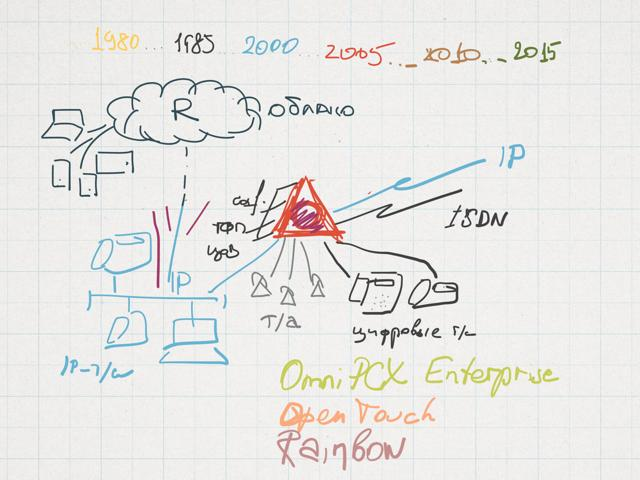 1980... 1985... 2000... 2005... 2010... 2015
R облако
IP
ISDN
IP
т/а
цифровые т/а
IP-т/а
OmniPCX Enterprise
OpenTouch
Rainbow